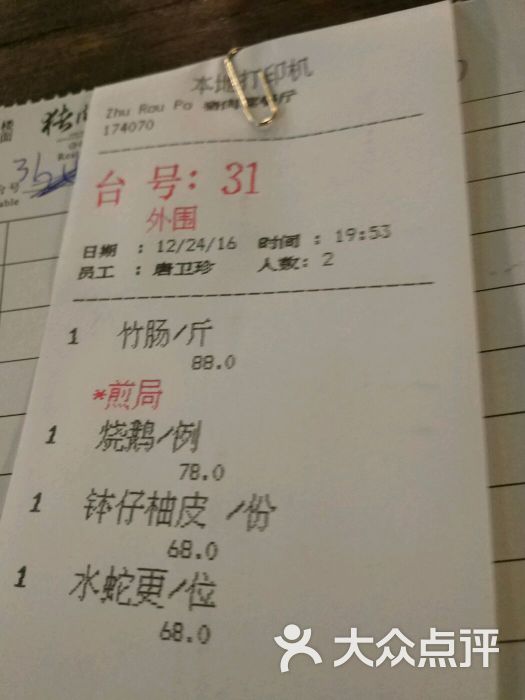 本地打印机
Zhu Rou Po 猪肉婆餐厅
174070
台 号: 31
外围
日期 : 12/24/16 时间 : 19:53
员工 : 唐卫珍 人数: 2
1 竹肠/斤
88.0
*煎局
1 烧鹅/例
78.0
1 钵仔柚皮 /份
68.0
1 水蛇更/位
68.0
楼
面
台号
able
36
大众点评